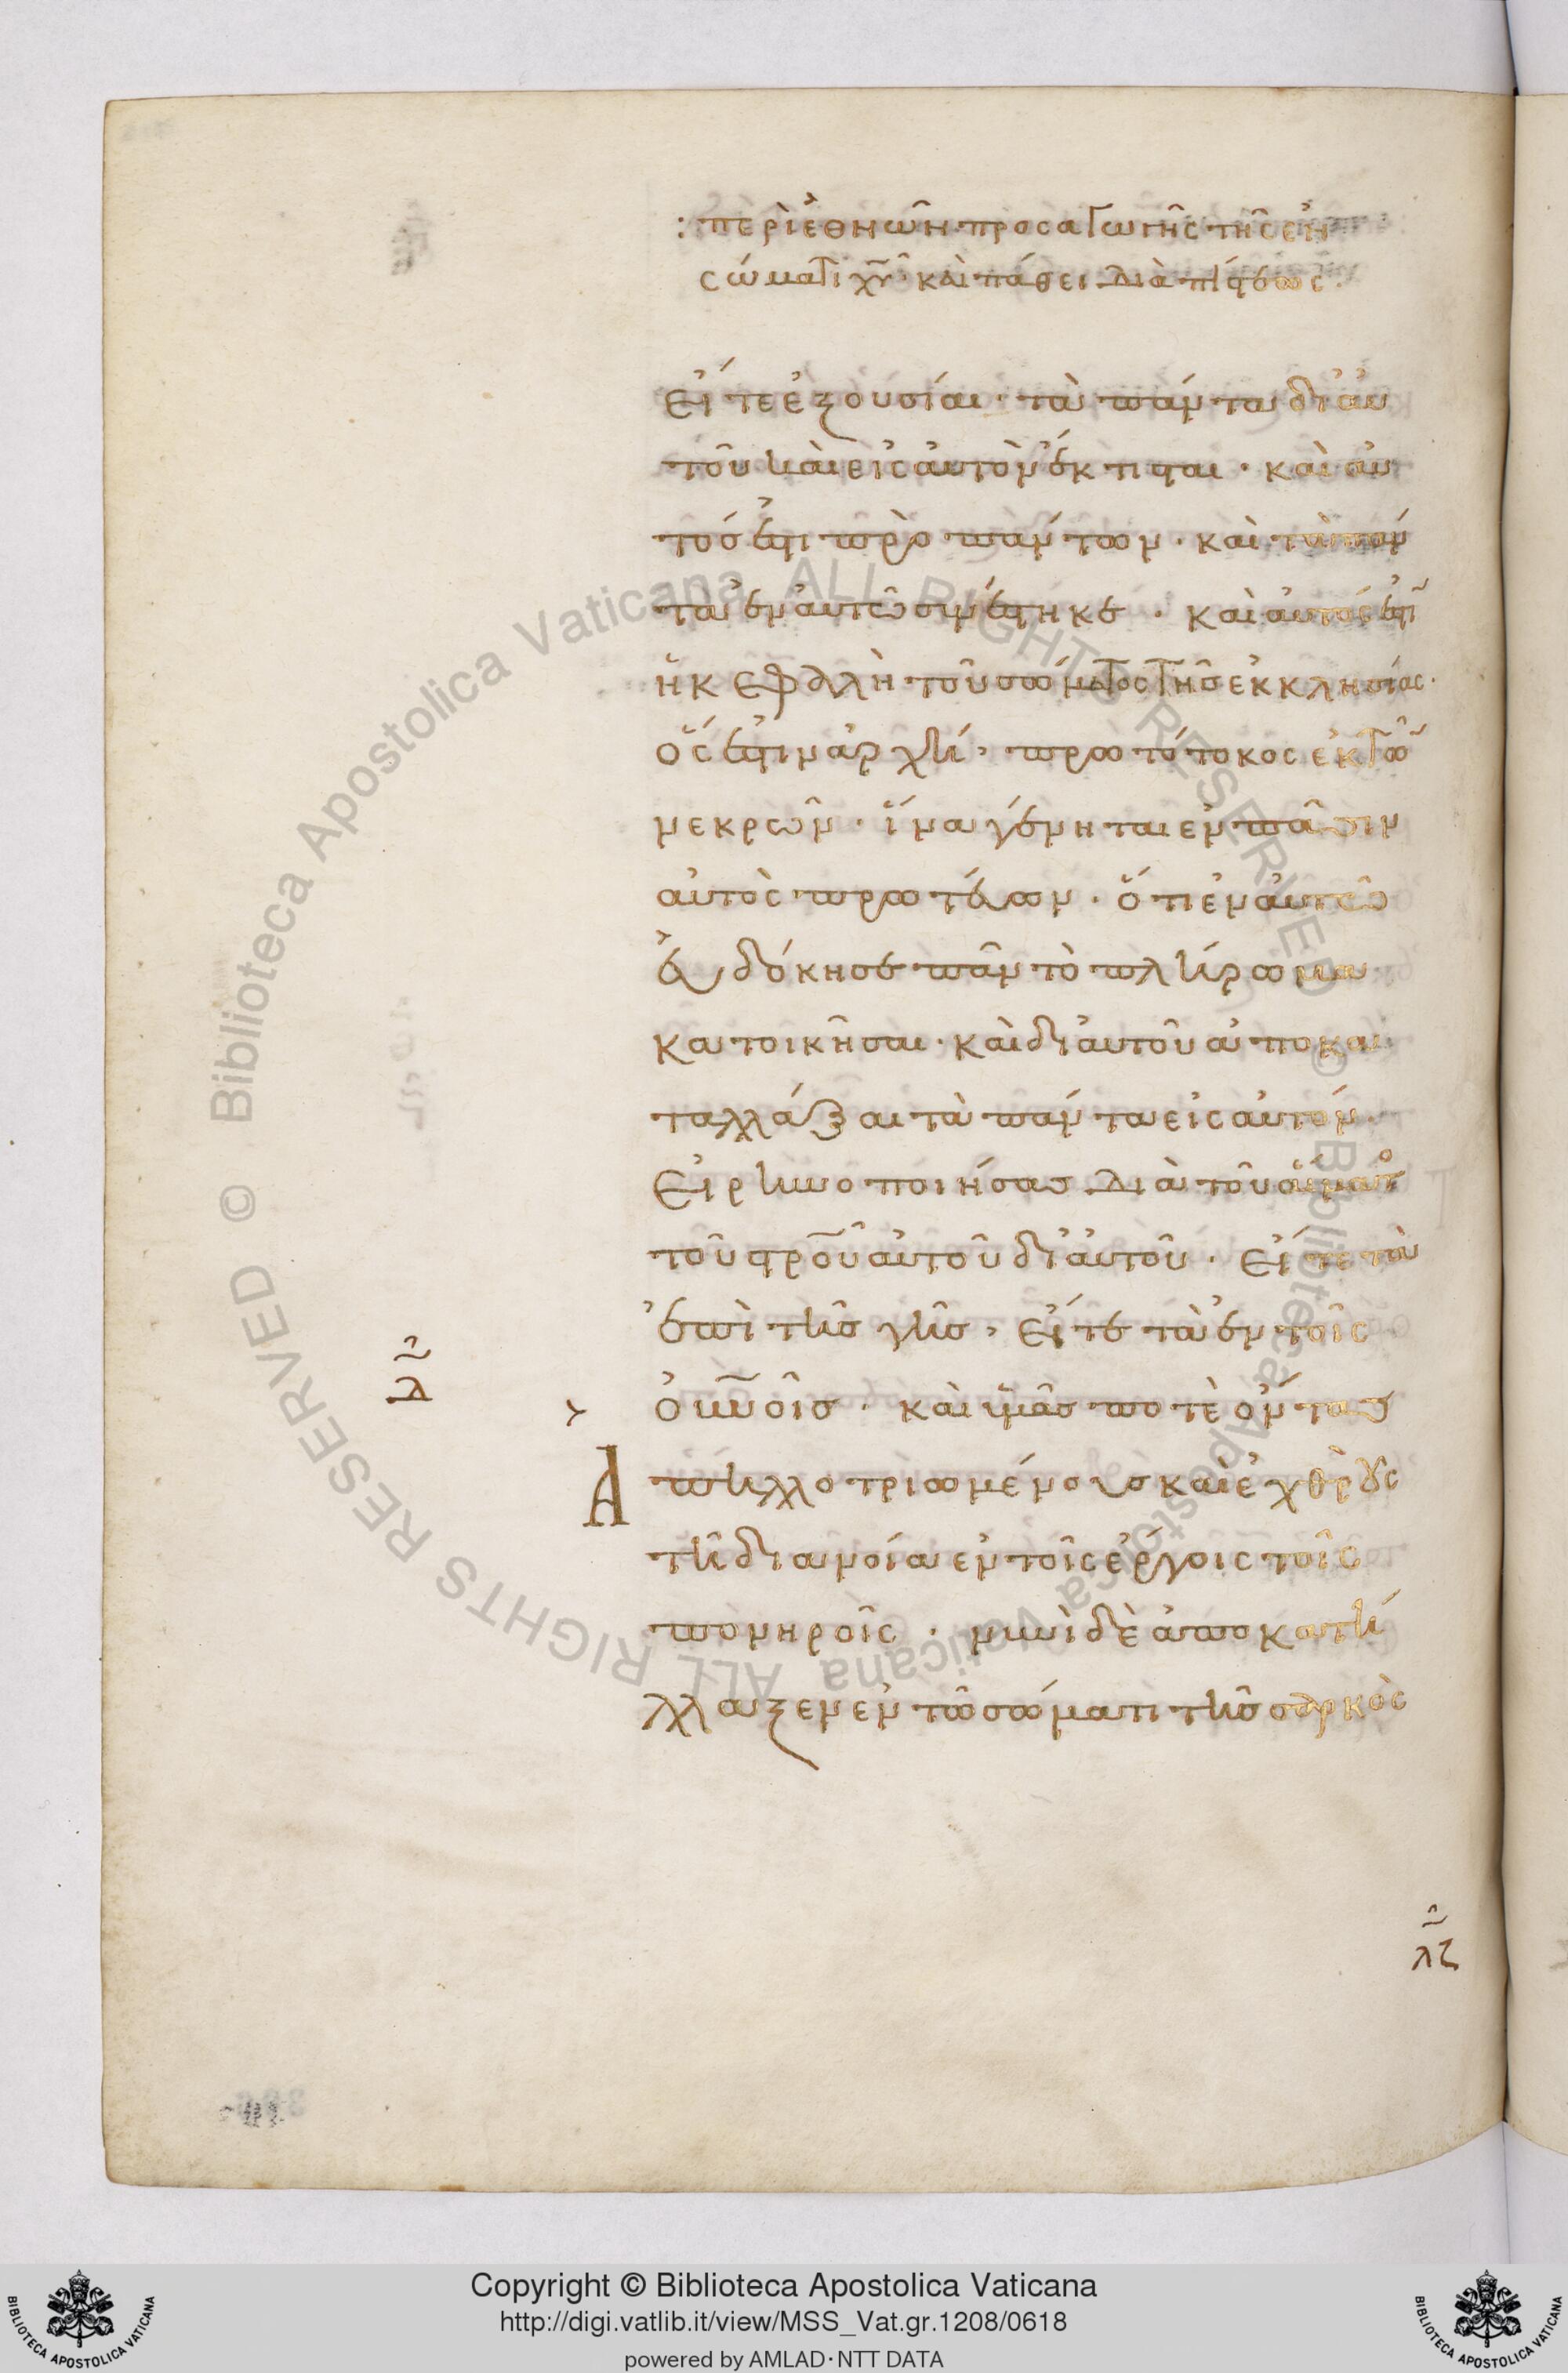 : περὶ ἐθνῶν προσαγωγῆς τῆς ἐν
σώματι χυ̅ καὶ πάθει διὰ πίστεως
εἴτε ἐξουσίαι · τὰ πάντα δι' αὐ
τοῦ καὶ εἰς αὐτὸν ἔκτισται · καὶ αὐ
τός ἐστι πρὸ πάντων · καὶ τὰ πάν
τα ἐν αὐτῶ συνέστηκε · καὶ αὐτός ἐστῖ
ἡ κεφαλὴ τοῦ σώματος τῆς ἐκκλησίας ·
ὅς ἐστιν ἀρχή · πρωτότοκος ἐκ τῶ̅
νεκρῶν · ἵνα γένηται ἐν πᾶσιν
αὐτὸς πρωτεύων · ὅτι ἐν αὐτῶ
εὐδόκησε πᾶν τὸ πλήρωμα
κατοικῆσαι · καὶ δι' αὐτοῦ ἀποκα
ταλλάξαι τὰ πάντα εἰς αὐτόν ·
εἰρηνοποιήσας διὰ τοῦ αἵματο
τοῦ στρο̅υ̅ αὐτοῦ δι' αὐτοῦ · εἴτε τὰ
ἐπὶ τῆς γῆς · εἴτε τὰ ἐν τοῖς
ο̅υ̅ν̅οῖς · καὶ ὑμᾶς ποτὲ ὄντας
Απηλλοτριωμένους καὶ ἐχθρους
τῆ διανοία ἐν τοῖς ἔργοις τοῖς
πονηροῖς · νυνὶ δὲ ἀποκατή
λλαξεν ἐν τῶ σώματι τῆς σαρκὸς
λ
λζ
© Biblioteca Apostolica Vaticana ALL RIGHTS RESERVED © Biblioteca Apostolica Vaticana ALL RIGHTS RESERVED
BIBLIOTECA APOSTOLICA VATICANA
Copyright © Biblioteca Apostolica Vaticana
http://digi.vatlib.it/view/MSS_Vat.gr.1208/0618
powered by AMLAD·NTT DATA
BIBLIOTECA APOSTOLICA VATICANA